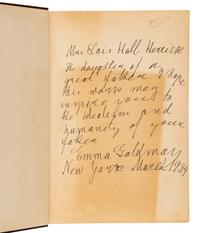 Mrs Lois Hall Herrick
The daughter of a
great father I hope
this work may
inspire you to
the idealism and
humanity of your
father
Emma Goldman
New York March 1934